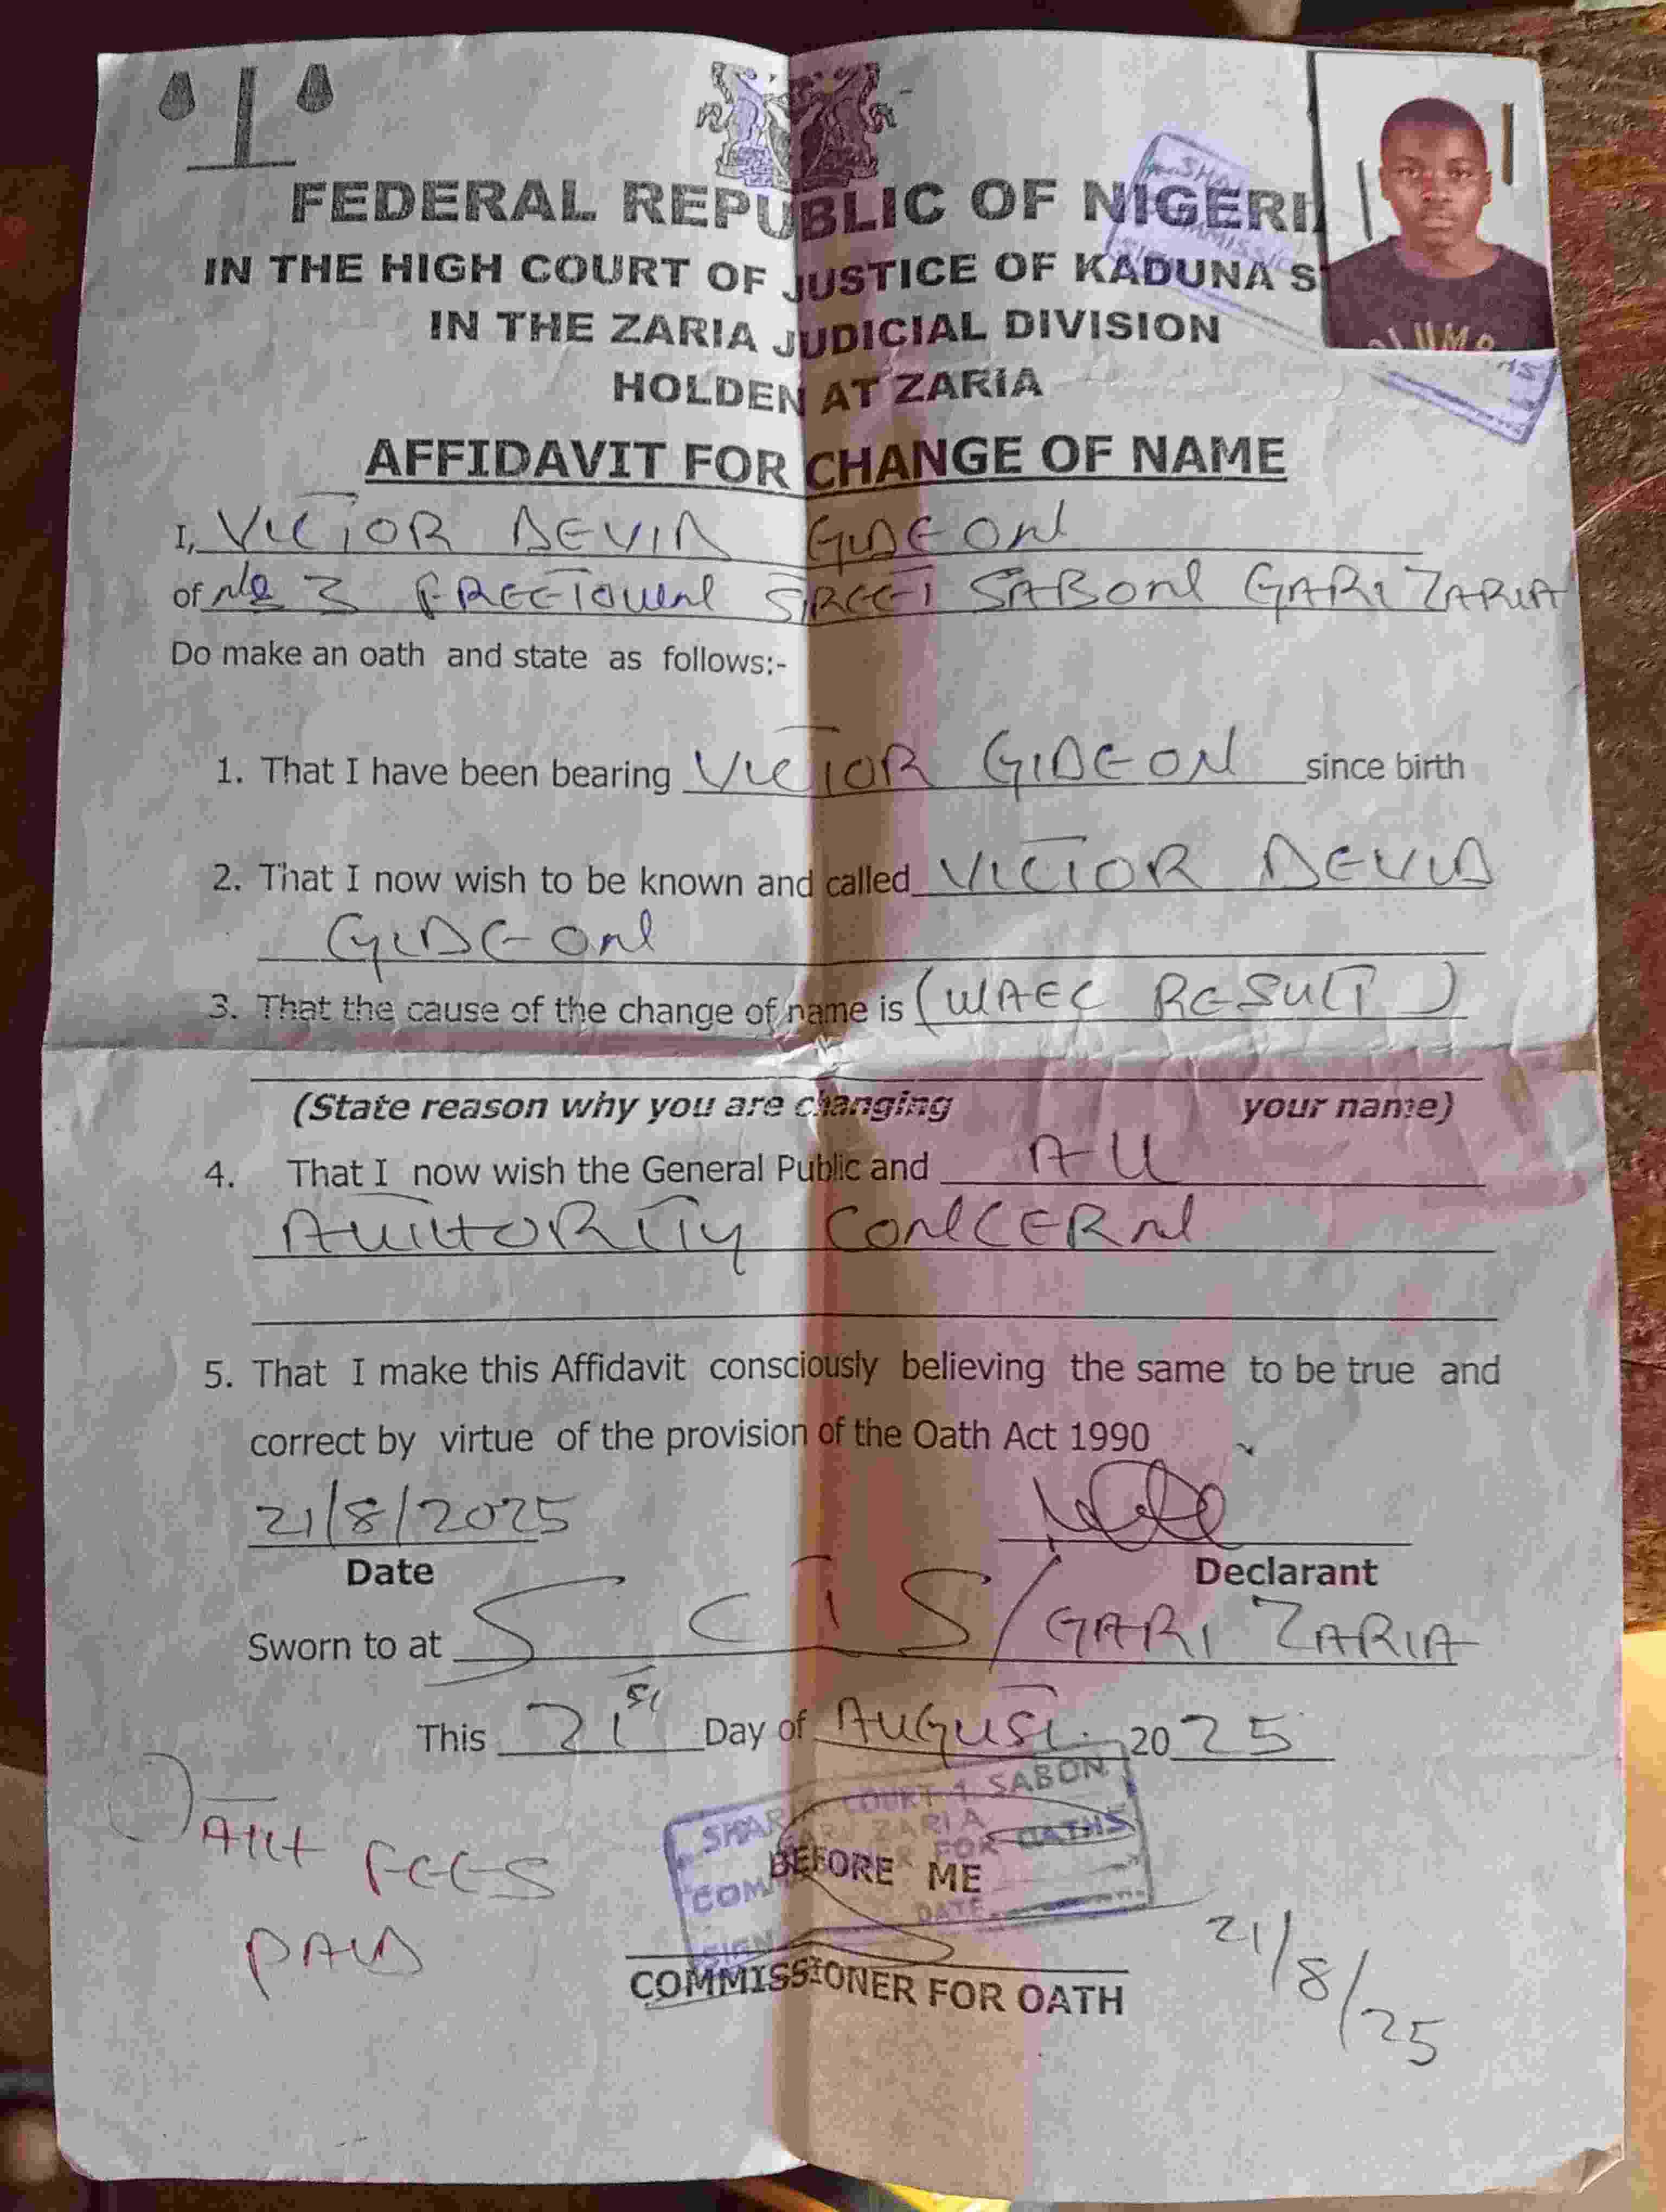 FEDERAL REPUBLIC OF NIGERI
IN THE HIGH COURT OF JUSTICE OF KADUNA S
IN THE ZARIA JUDICIAL DIVISION
HOLDEN AT ZARIA
AFFIDAVIT FOR CHANGE OF NAME
I, VICTOR DEVID GIDEON
of No 3 FREETOWN STREET SABON GARI ZARIA
Do make an oath and state as follows:-
1. That I have been bearing VICTOR GIDEON since birth
2. That I now wish to be known and called VICTOR DEVID
GIDEON
3. That the cause of the change of name is (WAEC RESULT)
(State reason why you are changing your name)
4. That I now wish the General Public and ALL
AUTHORITY CONCERN
5. That I make this Affidavit consciously believing the same to be true and
correct by virtue of the provision of the Oath Act 1990
21/8/2025
Date
Declarant
Sworn to at S C 1 S/GARI ZARIA
This 21st Day of AUGUST 2025
SHARIA COURT 1 SABON
GARI ZARIA
COMMISSIONER FOR OATHS
SIGN DATE
BEFORE ME
COMMISSIONER FOR OATH
FEES
PAID
21/8/25